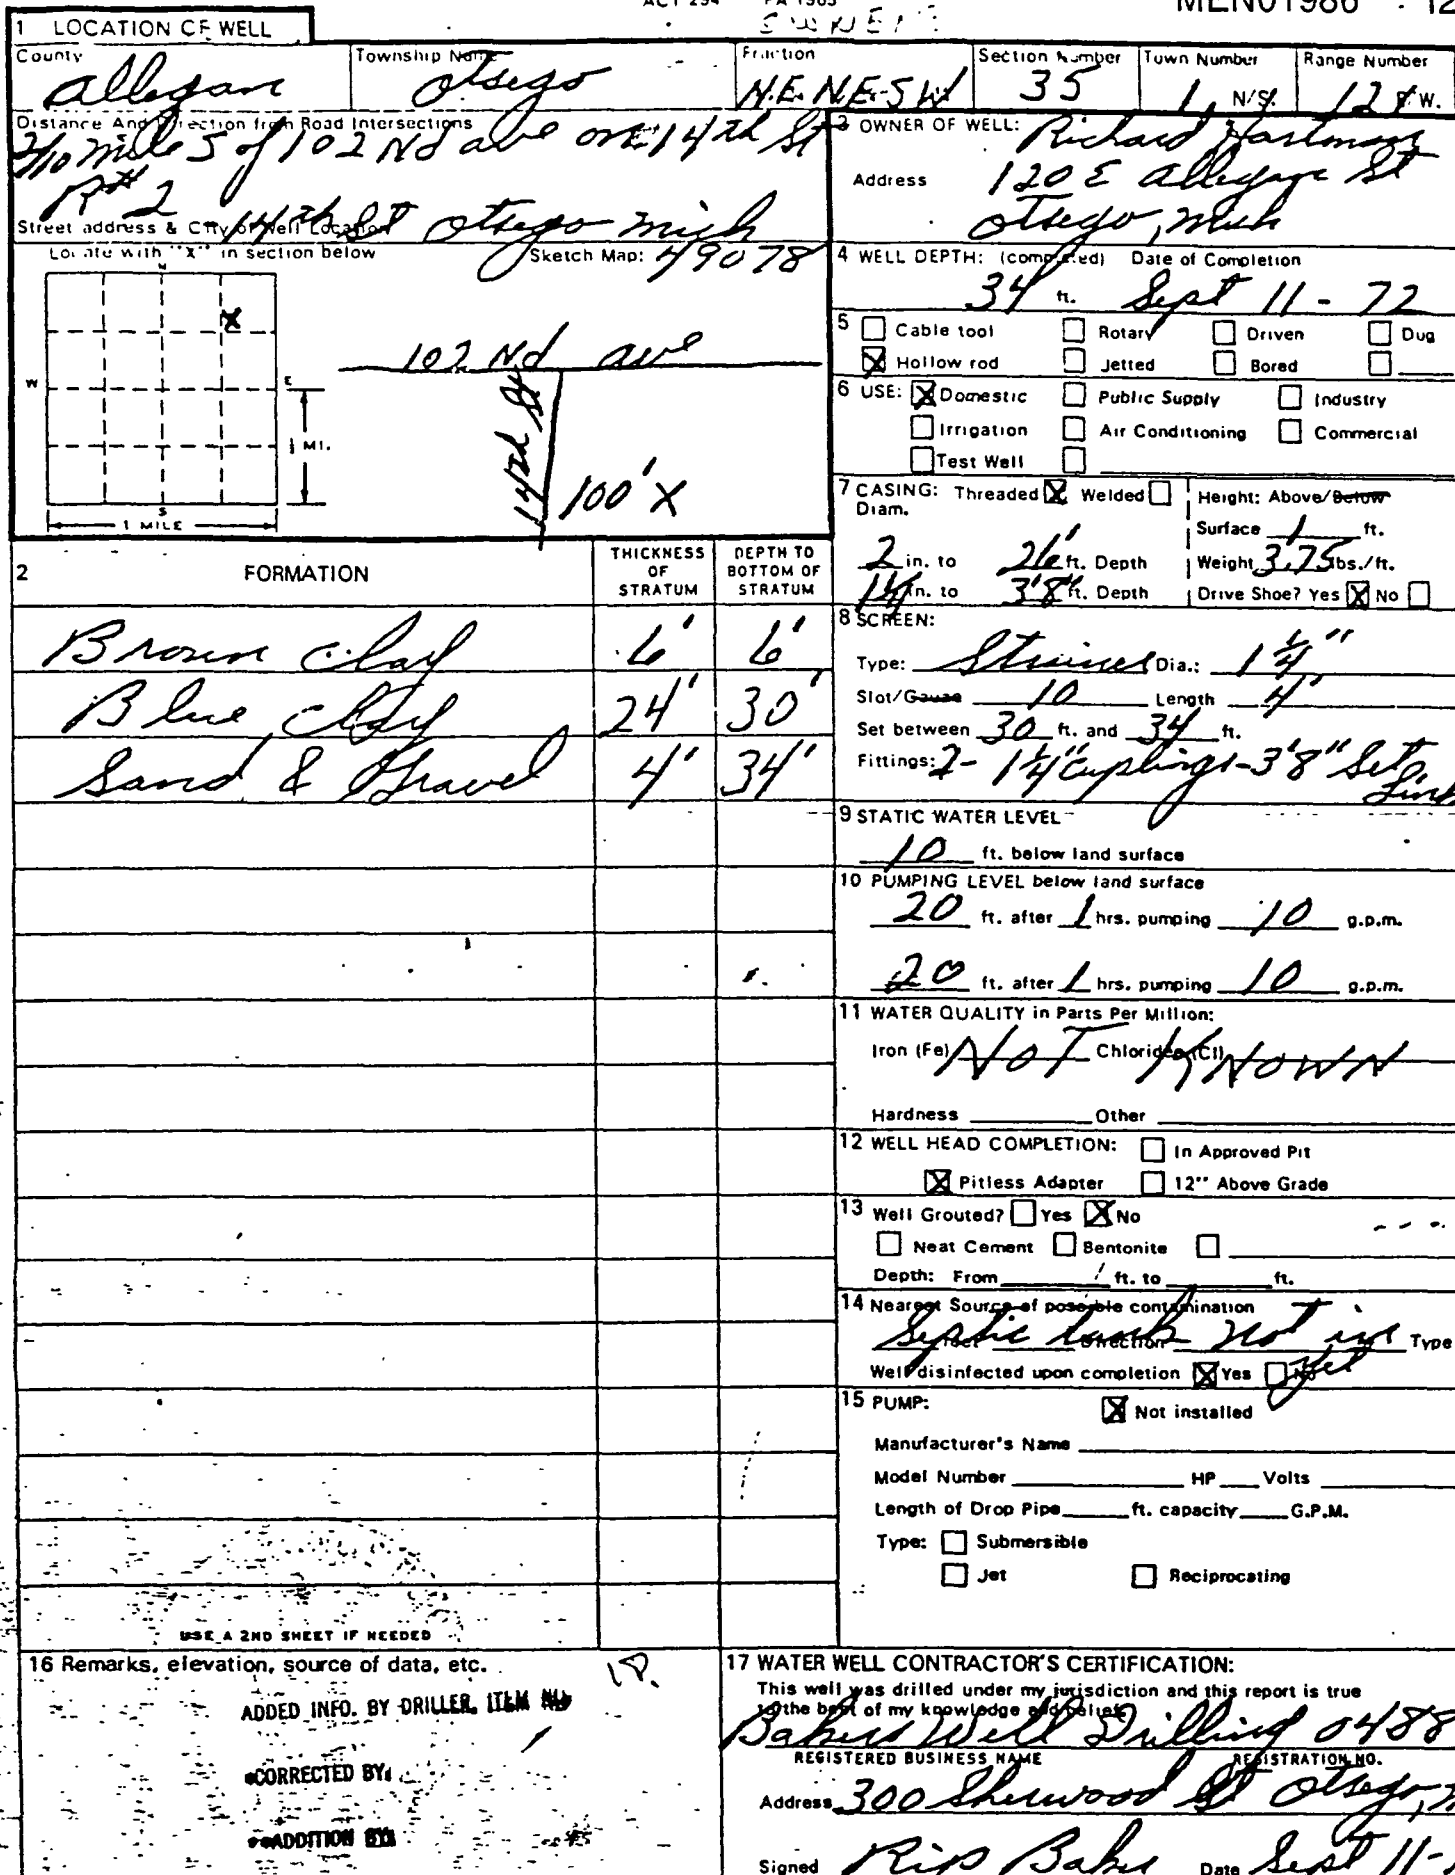 ACT 294 PA 1965
1 LOCATION OF WELL
County Township Name Fraction Section Number Town Number Range Number
Allegan Otsego N.E. N.E. S.W 35 1, N/S. 12 E/W.
Distance And Direction from Road Intersections
2/10 mile S of 102 Nd ave on 14th St
R# 2
14th St Otsego Mich
Street address & City of Well Location
49078
Locate with "X" in section below Sketch Map:
N
X
W E
S
½ MI.
1 MILE
102 Nd ave
14th St
100' X
3 OWNER OF WELL: Richard Hartman
Address 120 E Allegan St
Otsego, Mich
4 WELL DEPTH: (completed) Date of Completion
34 ft. Sept 11 - 72
5 Cable tool Rotary Driven Dug
X Hollow rod Jetted Bored
6 USE: X Domestic Public Supply Industry
Irrigation Air Conditioning Commercial
Test Well
7 CASING: Threaded X Welded Height: Above/Below
Diam. Surface 1 ft.
2 in. to 26' ft. Depth Weight 3.75 lbs./ft.
1¼ in. to 3'8" ft. Depth Drive Shoe? Yes X No
2 FORMATION THICKNESS OF STRATUM DEPTH TO BOTTOM OF STRATUM
Brown Clay 6' 6'
Blue Clay 24' 30'
Sand & Gravel 4' 34'
8 SCREEN:
Type: Strainer Dia.: 1¼"
Slot/Gauze 10 Length 4'
Set between 30 ft. and 34 ft.
Fittings: 2- 1¼" Cuplings - 3'8" Set
9 STATIC WATER LEVEL
10 ft. below land surface
10 PUMPING LEVEL below land surface
20 ft. after 1 hrs. pumping 10 g.p.m.
20 ft. after 1 hrs. pumping 10 g.p.m.
11 WATER QUALITY in Parts Per Million:
Iron (Fe) NOT Chlorides (Cl) KNOWN
Hardness Other
12 WELL HEAD COMPLETION: In Approved Pit
X Pitless Adapter 12" Above Grade
13 Well Grouted? Yes X No
Neat Cement Bentonite
Depth: From ft. to ft.
14 Nearest Source of possible contamination
Septic tank not in yet
feet Direction Type
Well disinfected upon completion X Yes No
15 PUMP: X Not installed
Manufacturer's Name
Model Number HP Volts
Length of Drop Pipe ft. capacity G.P.M.
Type: Submersible
Jet Reciprocating
USE A 2ND SHEET IF NEEDED
16 Remarks, elevation, source of data, etc.
ADDED INFO. BY DRILLER, ITEM NO.
*CORRECTED BY:
**ADDITION BY:
17 WATER WELL CONTRACTOR'S CERTIFICATION:
This well was drilled under my jurisdiction and this report is true
to the best of my knowledge and belief.
Bakers Well Drilling 0488
REGISTERED BUSINESS NAME REGISTRATION NO.
Address 300 Sherwood St Otsego,
Signed Rip Baker Date Sept 11-